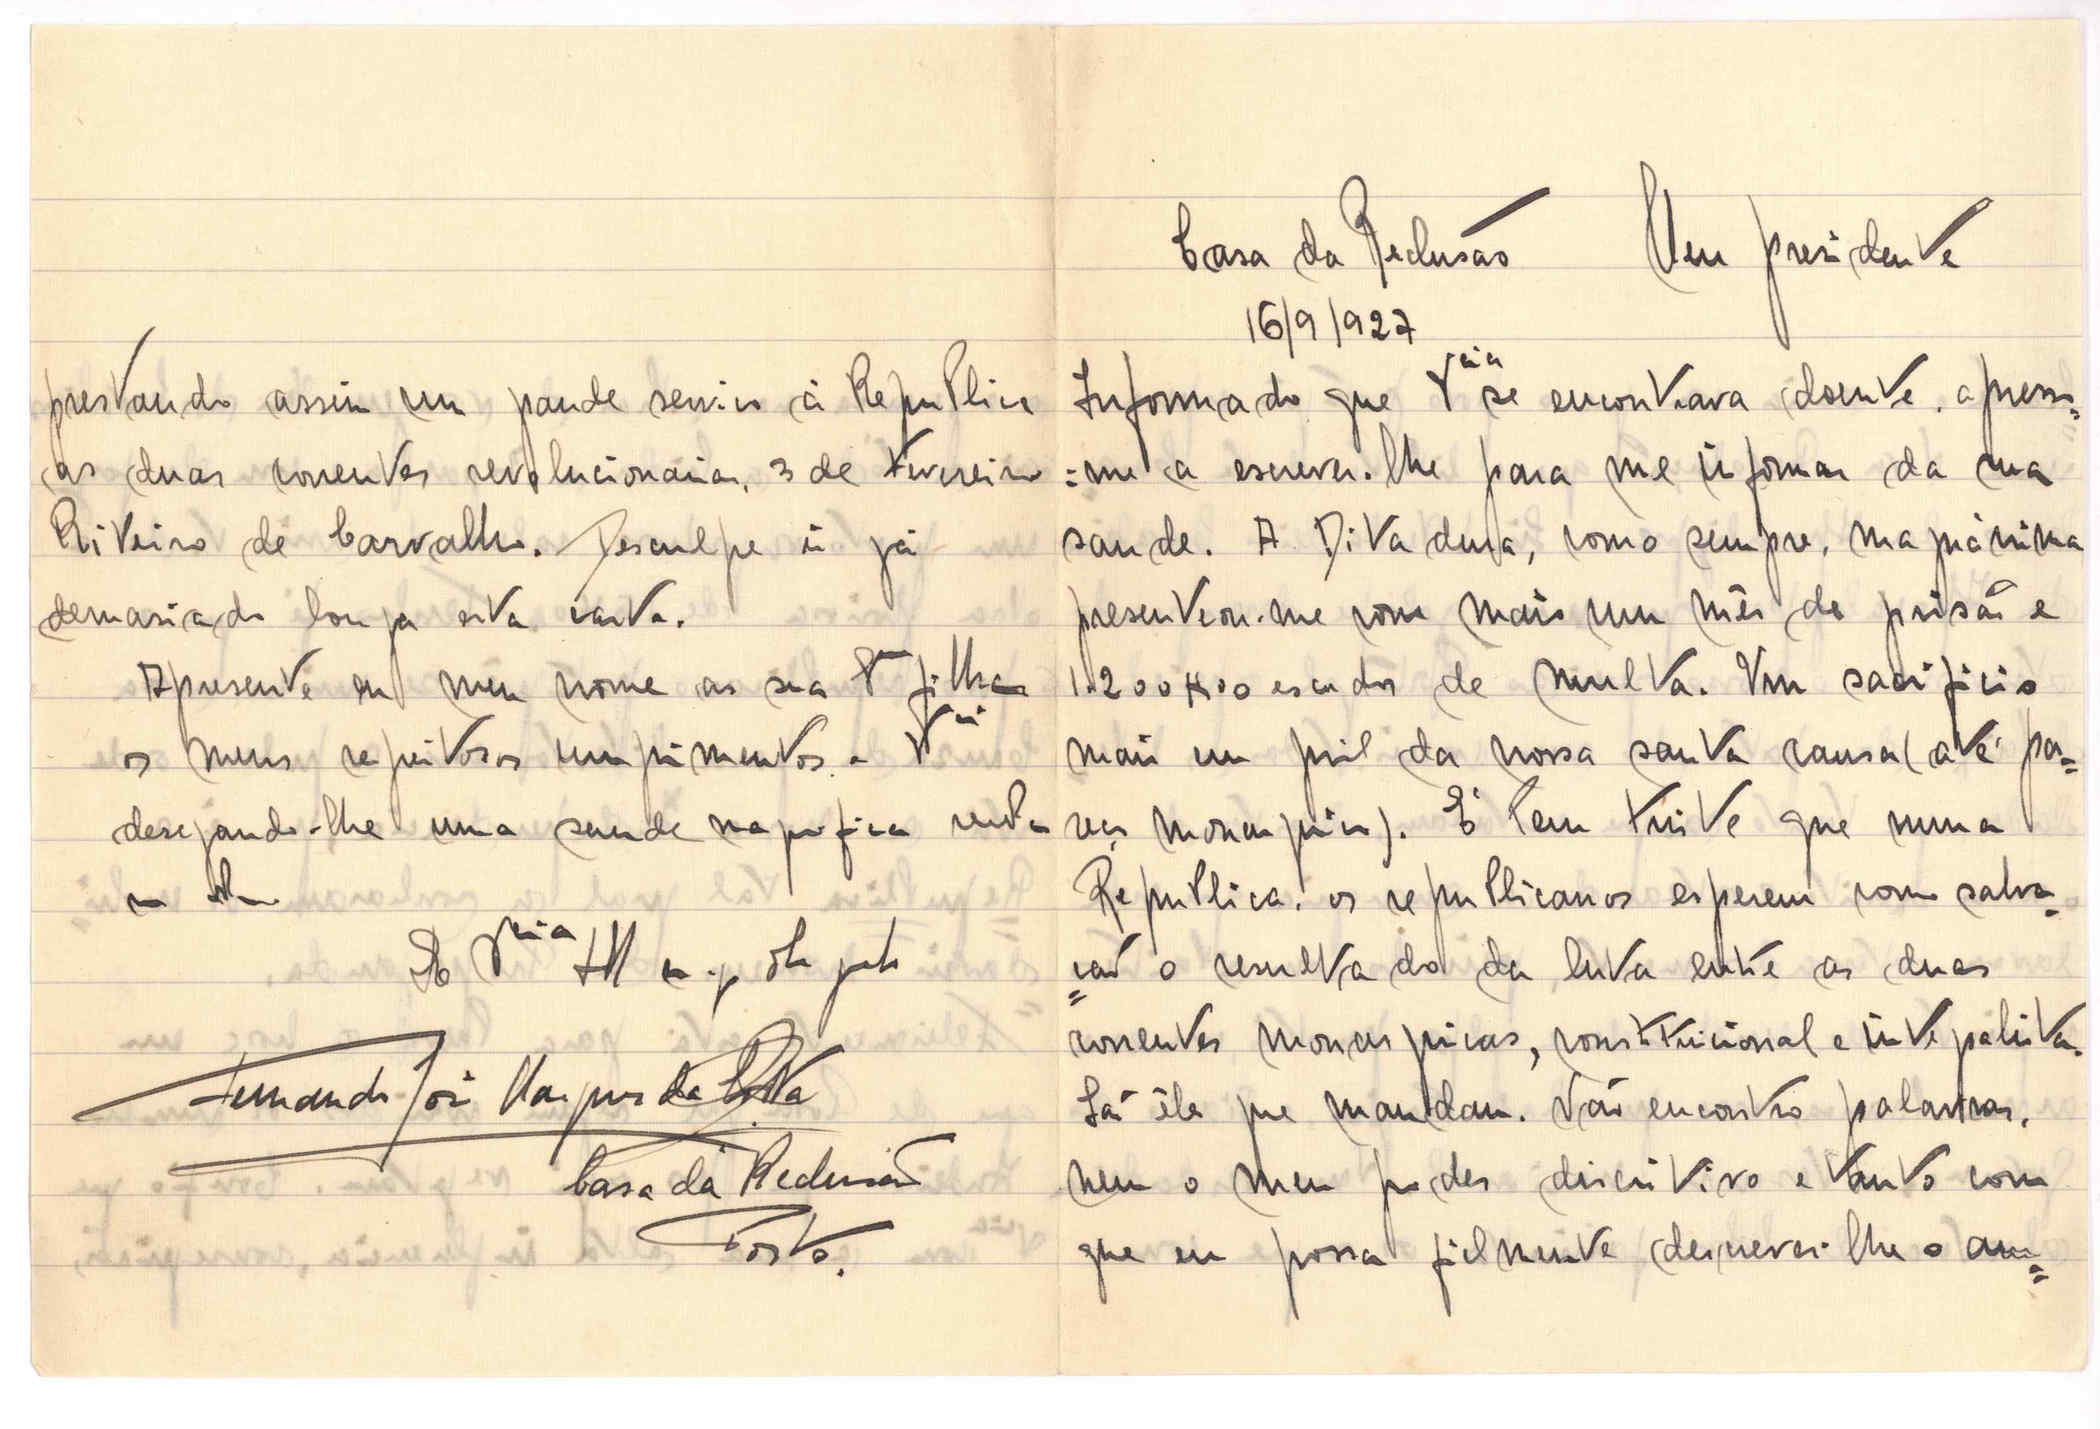 Casa da Reclusão Meu presidente
16/9/927
Informado que V.cia se encontrava doente, apresso=
=me a escrever-lhe para me informar da sua
saude. A Ditadura, como sempre, magnánima
presenteou-me com mais um mês de prisão e
1.200$00 escudos de multa. Um sacrificio
mais em pról da nossa santa causa (até pa=
rece monarquica). É bem triste que numa
Republica, os republicanos esperem como salva=
=ção o resultado da luta entre as duas
correntes monarquicas, constitucional e integralista.
São êles que mandam. Não encontro palavras,
nem o meu poder discritivo é tanto com
que eu possa fielmente descrever-lhe o am=
prestando assim um grande serviço á Republica
as duas correntes revolucionarias, 3 de Fevereiro
Ribeiro de Carvalho. Desculpe ir já
demasiado longa esta carta.
Apresente em meu nome as sua filhas
os meus respeitosos cumprimentos e V.cia
desejando-lhe uma saude magnifica
De V.cia
Fernando José Marques da Costa
Casa da Reclusão
Porto.